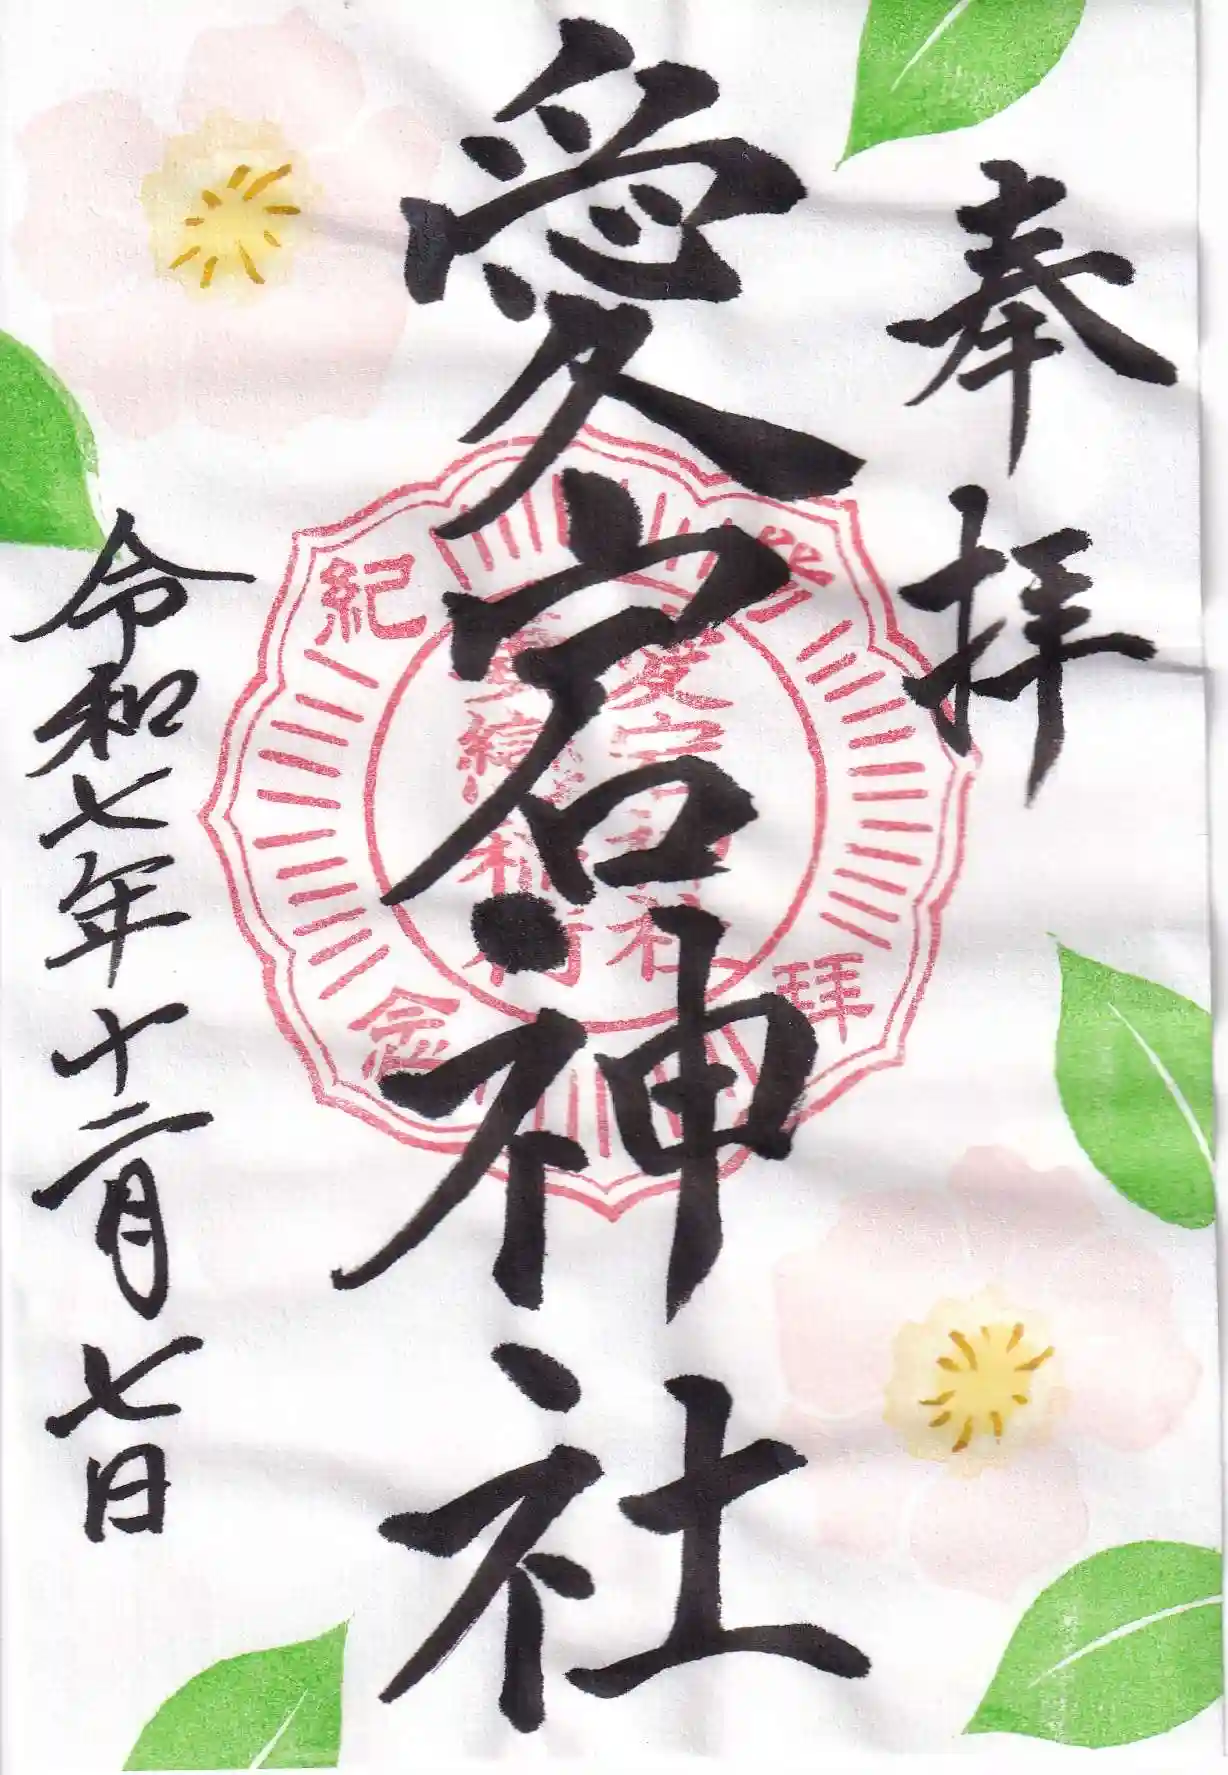 奉拝
愛宕神社
登拝紀念
愛宕神社
令和七年十二月七日